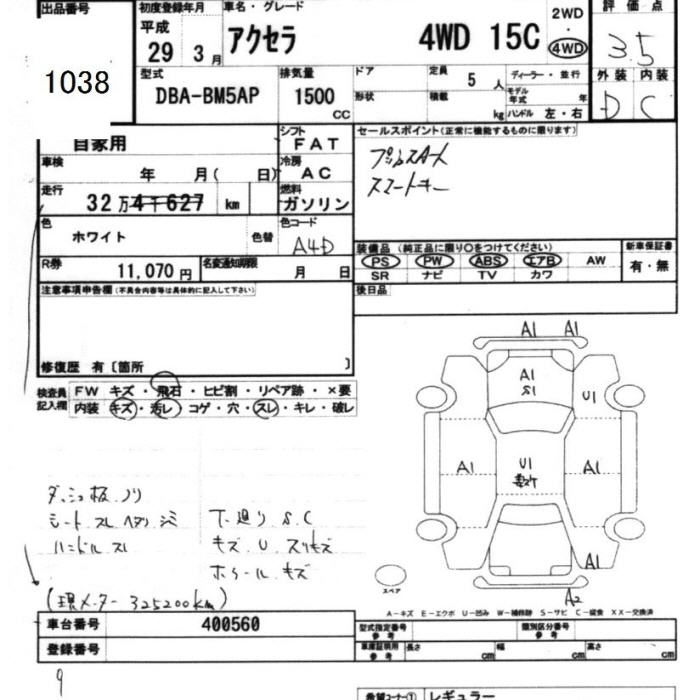 出品番号
1038
初度登録年月
平成
29 3月
車名・グレード
アクセラ 4WD 15C
2WD
・
4WD
評価点
3.5
外装 内装
D C
型式
DBA-BM5AP
排気量
1500
CC
ドア
定員
5 人
形状
積載
kg
ディーラー・並行
モデル年式 年
ハンドル 左・右
自家用
シフト
FAT
車検
年 月( 日)
冷房
AC
走行
32 万4千627 km
燃料
ガソリン
色
ホワイト
色替
色コード
A4D
R券
11,070 円
名変通知期限
月 日
セールスポイント(正常に機能するものに限ります)
プッシュスタート
スマートキー
装備品 (純正品に限り○をつけてください)
PS PW ABS エアB AW
SR ナビ TV カワ
新車保証書
有・無
後日品
注意事項申告欄(不具合内容等は具体的に記入して下さい)
修復歴 有〔箇所 〕
検査員
記入欄
FW キズ・飛石・ヒビ割・リペア跡・×要
内装 キズ・汚レ・コゲ・穴・スレ・キレ・破レ
ダッシュ板ノリ
シート スレ ヘタリ シミ
ハンドル スレ
下廻り S.C
キズ U スリキズ
ホイール キズ
(現メーター 325200km)
A1 A1
A1
S1
U1
A1
U1
A1
A1
A2
スペア
A-キズ E-エクボ U-凹み W-補修跡 S-サビ C-腐食 XX-交換済
車台番号
400560
登録番号
型式指定番号
参考
類別区分番号
参考
車庫証明用
参考
長さ cm
幅 cm
高さ cm
希望コーナー①
レギュラー